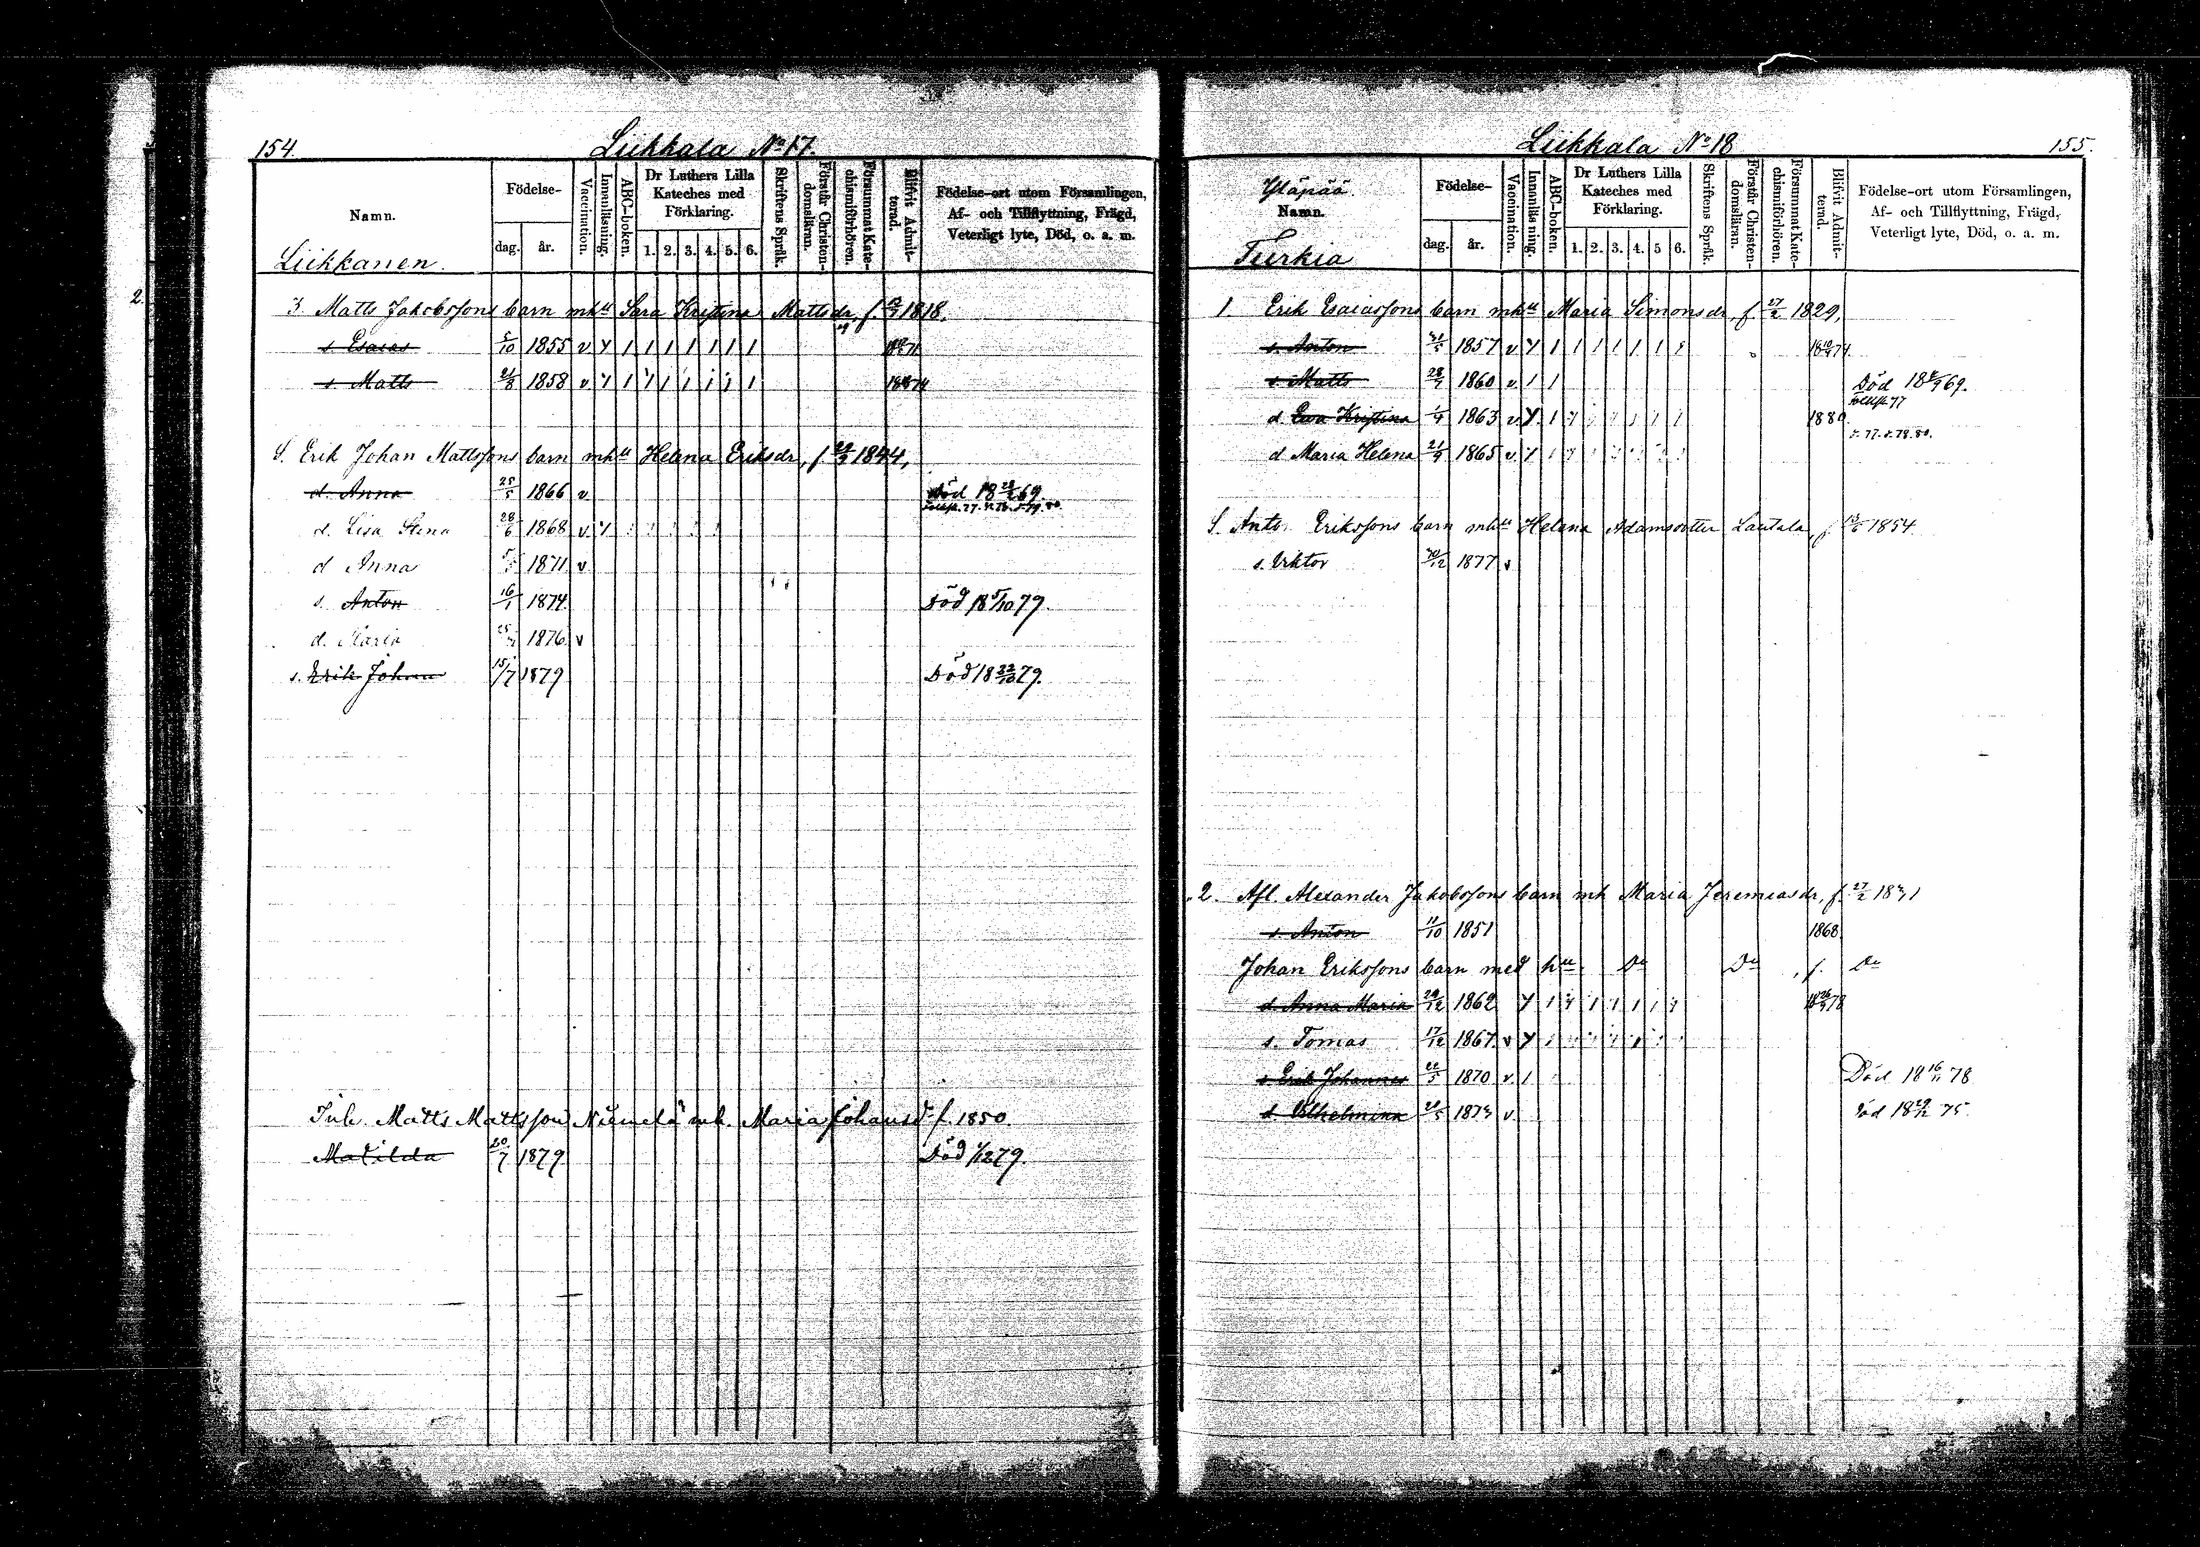 154.
Liikkala No 17.
Namn.
Liikkanen.
Födelse-
dag.
år.
Vaccination.
Innanläsning.
ABC-boken.
Dr Luthers Lilla
Kateches med
Förklaring.
1. 2. 3. 4. 5. 6.
Skriftens Språk.
Förstår Christen-
domsläran.
Försummat Kate-
chismiförhören.
Blifvit Admit-
terad.
Födelse-ort utom Församlingen,
Af- och Tillflyttning, Frägd,
Veterligt lyte, Död, o. a. m.
3 Matts Jakobssons barn m hu Sara Kristina Mattsdr, f. 1818.
s Esaias 5/10 1855 v y 1 1 1 1 1 1 1
s. Matts 21/8 1858 v y 1 1 1 1 1 1 1
S. Erik Johan Mattssons barn m hu Helena Eriksdr, f 1844,
d. Anna 25/5 1866 v Död 69.
d. Lisa Stina 28/6 1868 v y
d Anna 1871 v
s. Anton 16/1 1874 Död 18 5/10 79.
d. Maria 1876 v
s. Erik Johan 15/7 1879 Död 18 22/10 79.
Inh. Matts Mattsson Niemelä mh. Maria Johansdr f. 1850.
Matilda 20/7 1879 Död 1/12 79.
Liikkala No 18
155.
Yläpää
Namn.
Turkia
Födelse-
dag.
år.
Vaccination.
Innanläsning.
ABC-boken.
Dr Luthers Lilla
Kateches med
Förklaring.
1. 2. 3. 4. 5 6.
Skriftens Språk.
Förstår Christen-
domsläran.
Försummat Kate-
chismiförhören.
Blifvit Admit-
terad.
Födelse-ort utom Församlingen,
Af- och Tillflyttning, Frägd,
Veterligt lyte, Död, o. a. m.
1 Erik Esaiassons barn m hu Maria Simonsdr f. 27/2 1829,
s. Anton 1857 v y 1 1 1 1 1 1 1 74.
s. Matts 28/7 1860 v 1 1 Död 69.
d. Eva Kristina 1/4 1863 v y 1 1880
d Maria Helena 21/9 1865 v y
S. Ant. Erikssons barn m hu Helena Adamsdotter Lautala, f. 1854.
s. Viktor 1877 v
2. Afl. Alexander Jakobssons barn mh Maria Jeremiasdr, f. 27/2
s. Anton 11/10 1851 1868
Johan Erikssons barn med hu Do Do, f. Do
d Anna Maria 1862 y 1 78
s. Tomas 17/12 1867 v y
s Erik Johannes 22/5 1870 v 1 Död 18 16/11 78
d. Vilhelmina 1873 v. Död 18 29/12 75.